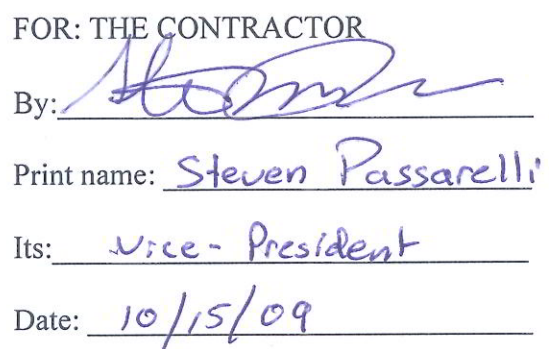 FOR: THE CONTRACTOR
By:
Print name: Steven Passarelli
Its: Vice-President
Date: 10/15/09